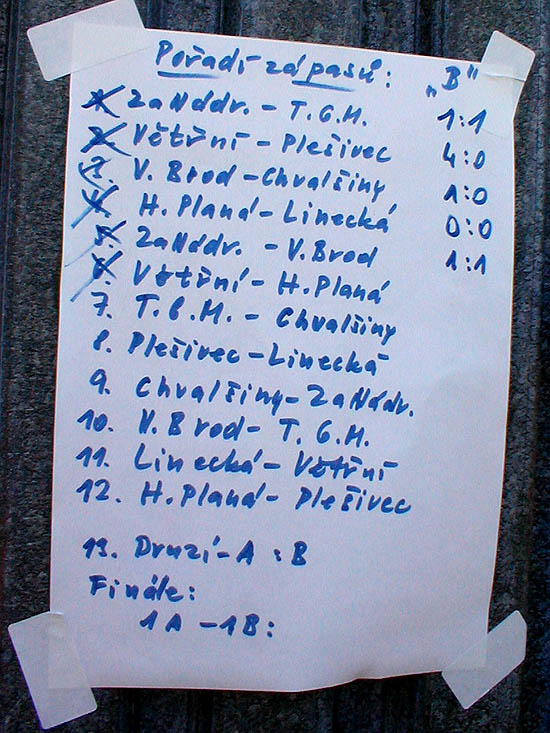 Pořadí zápasů: „B"
1. Za Nádr. - T.G.M. 1:1
2. Větřní - Plešivec 4:0
3. V. Brod - Chvalšiny 1:0
4. H. Planá - Linecká 0:0
5. Za Nádr. - V. Brod 1:1
6. Větřní - H. Planá
7. T.G.M. - Chvalšiny
8. Plešivec - Linecká
9. Chvalšiny - Za Nádr.
10. V. Brod - T.G.M.
11. Linecká - Větřní
12. H. Planá - Plešivec
13. Druzí - A : B
Finále:
1A - 1B: